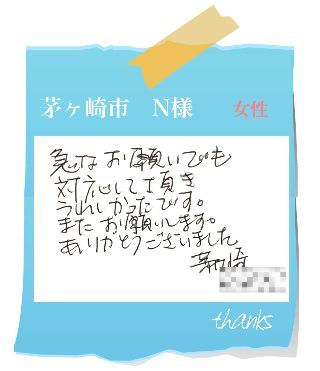 茅ヶ崎市 N様 女性
急なお願いでも
対応して頂き
うれしかったです。
またお願いします。
ありがとうございました
茅ヶ崎
thanks